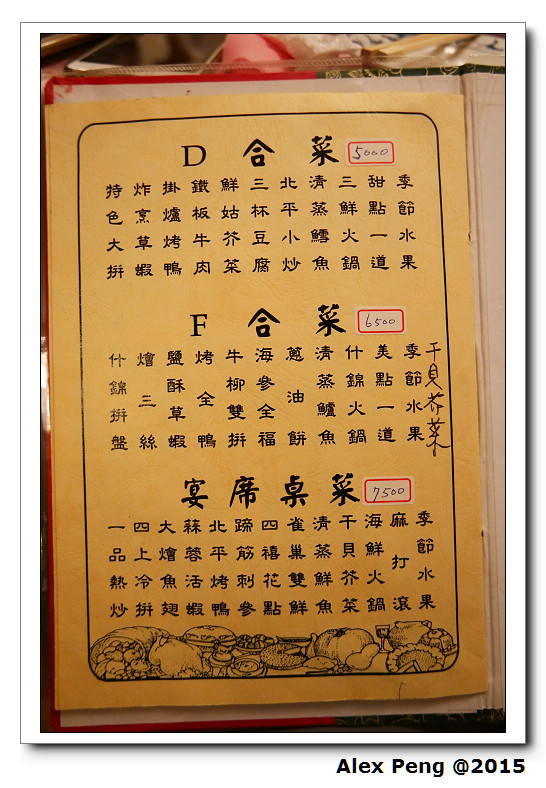 D 合菜 5000
特色大拼
炸烹草蝦
掛爐烤鴨
鐵板牛肉
鮮菇芥菜
三杯豆腐
北平小炒
清蒸鱈魚
三鮮火鍋
甜點一道
季節水果
F 合菜 6500
什錦拼盤
燴三絲
鹽酥草蝦
烤全鴨
牛柳雙拼
海參全福
蔥油餅
清蒸鱸魚
什錦火鍋
美點一道
季節水果
干貝芥菜
宴席桌菜 7500
一品熱炒
四上冷拼
大燴魚翅
蒜蓉活蝦
北平烤鴨
蹄筋刺參
四禧花點
雀巢雙鮮
清蒸鮮魚
干貝芥菜
海鮮火鍋
麻打滾
季節水果
Alex Peng @2015